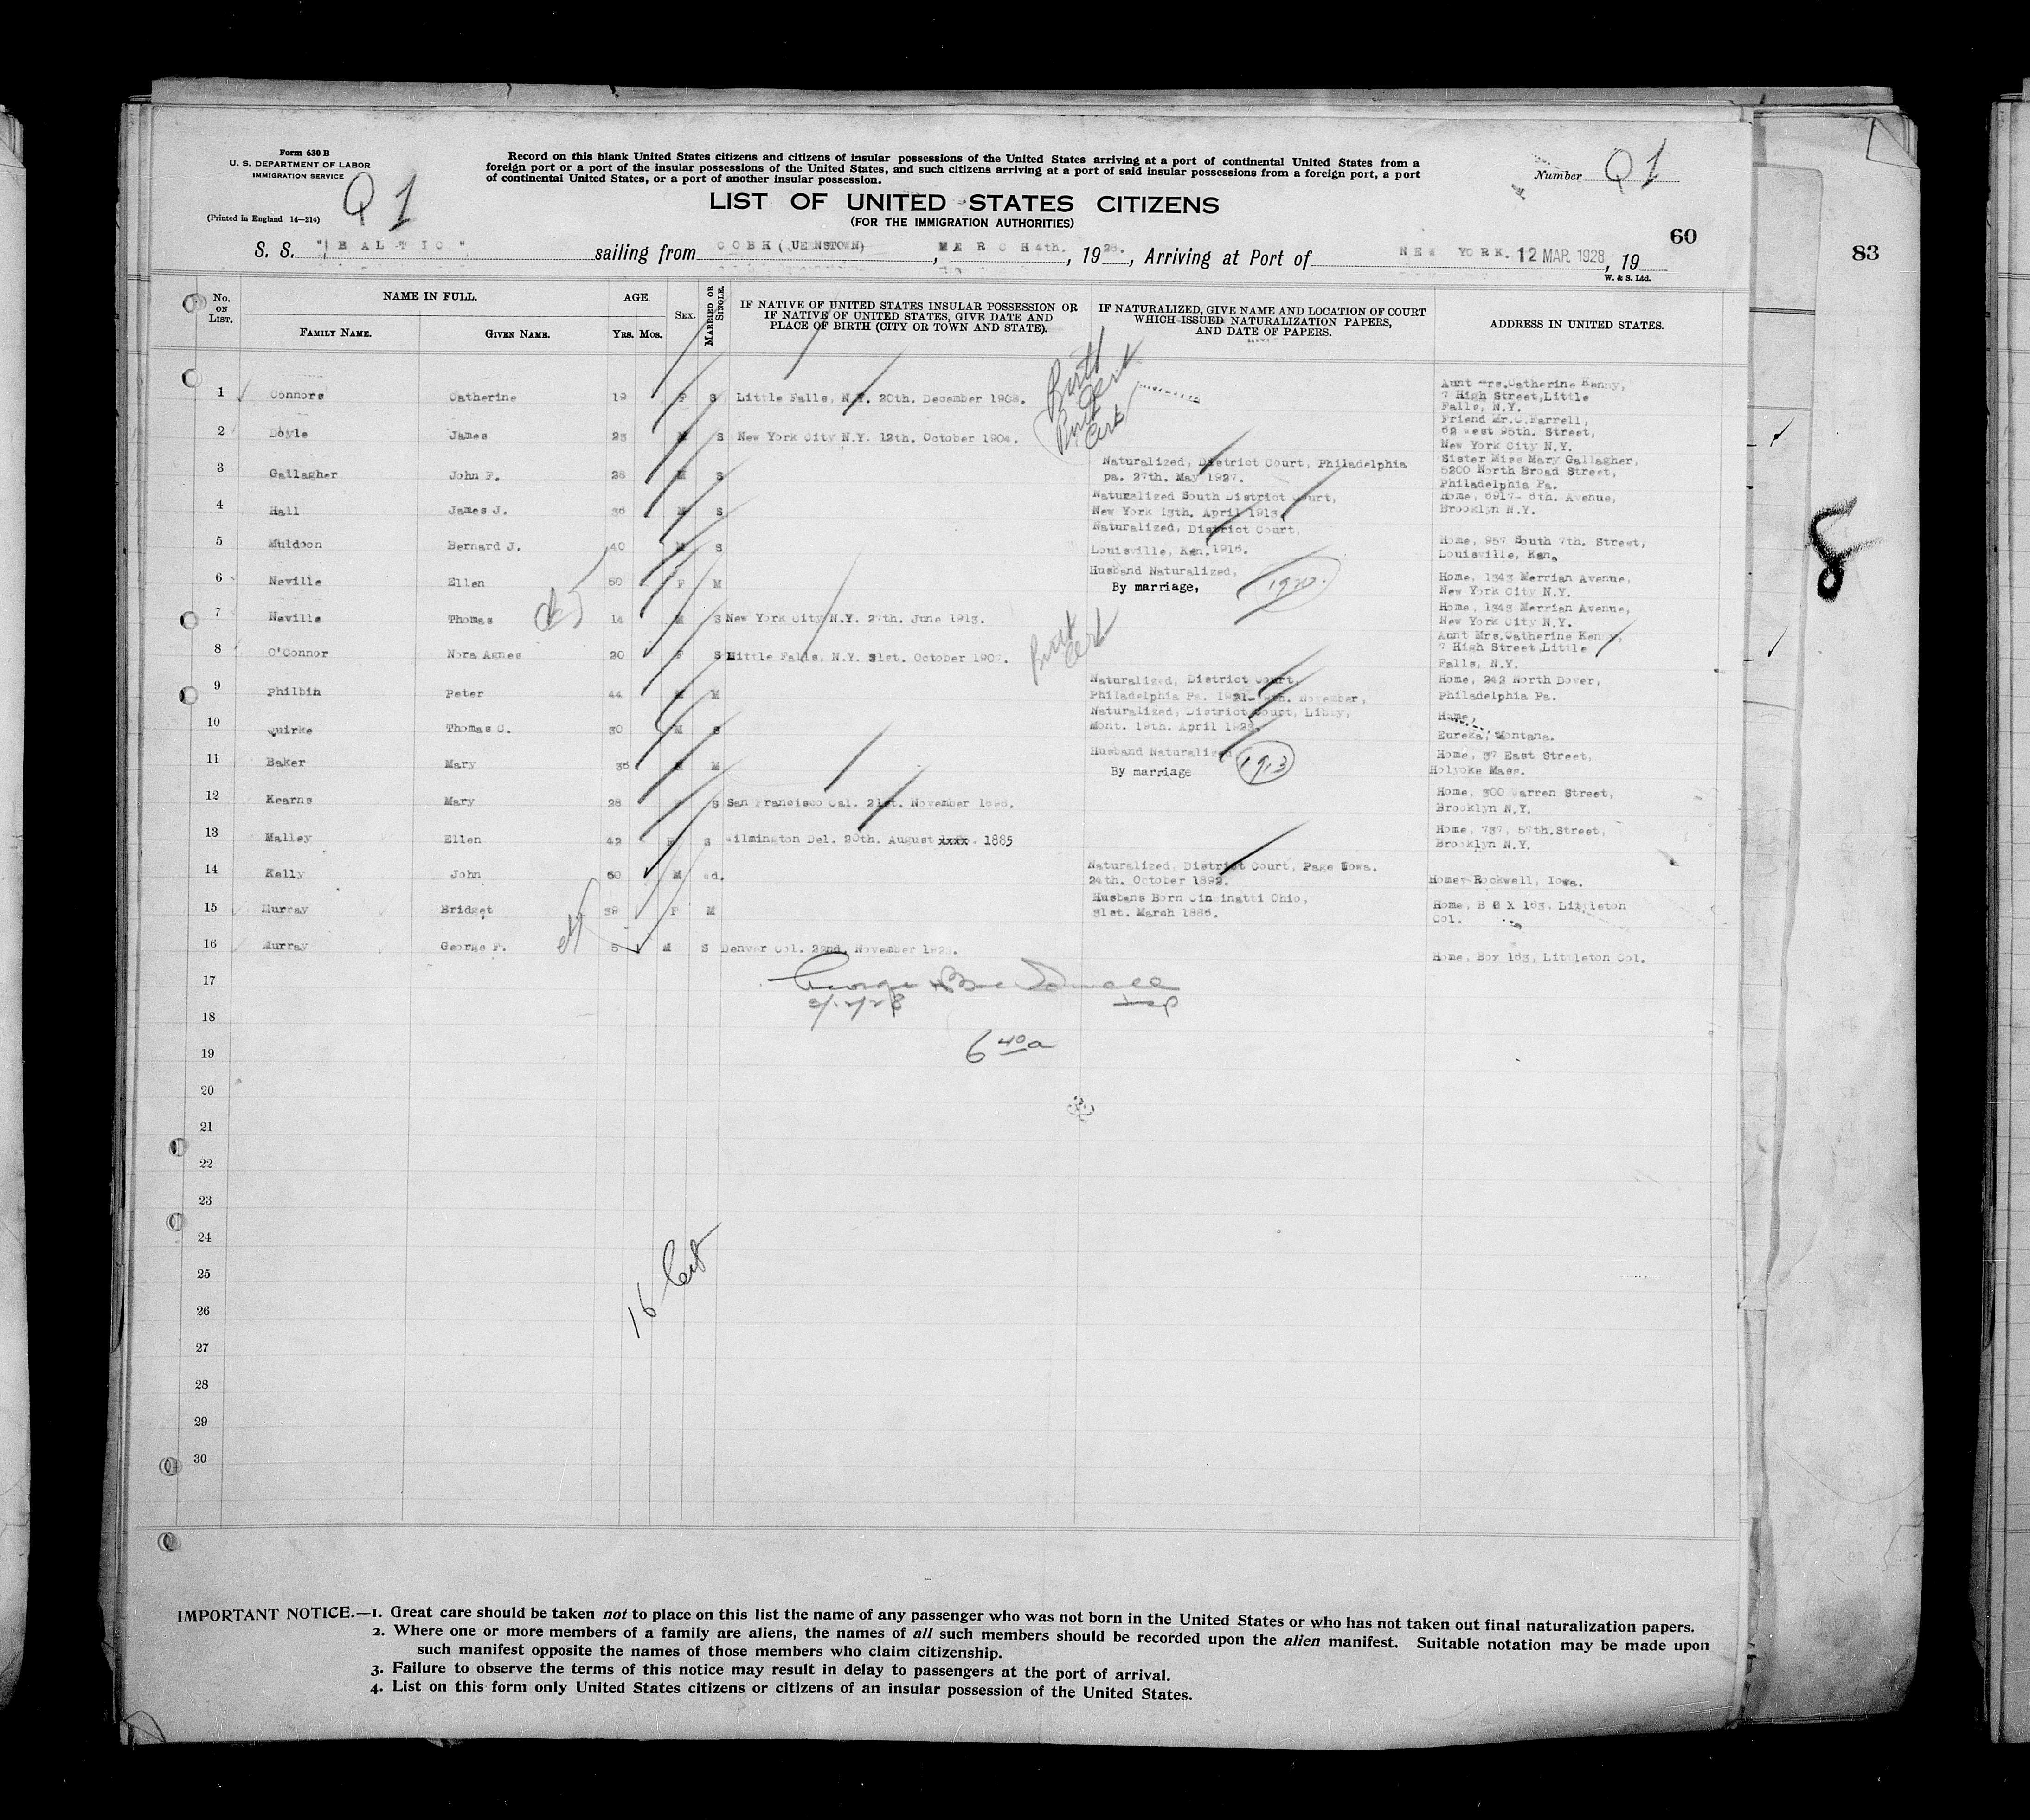 Form 630 B
U. S. DEPARTMENT OF LABOR
IMMIGRATION SERVICE
Q 1
(Printed in England 14—214)
Record on this blank United States citizens and citizens of insular possessions of the United States arriving at a port of continental United States from a
foreign port or a port of the insular possessions of the United States, and such citizens arriving at a port of said insular possessions from a foreign port, a port
of continental United States, or a port of another insular possession.
Number Q1
LIST OF UNITED STATES CITIZENS
(FOR THE IMMIGRATION AUTHORITIES)
60
83
S. S. "BALTIC" sailing from COBH (UEENSTOWN), MARCH 4th., 1928., Arriving at Port of NEW YORK. 12 MAR 1928, 19
W. & S. Ltd.
No. ON LIST. NAME IN FULL. FAMILY NAME. GIVEN NAME. AGE. Yrs. Mos. SEX. MARRIED OR SINGLE.
IF NATIVE OF UNITED STATES INSULAR POSSESSION OR
IF NATIVE OF UNITED STATES, GIVE DATE AND
PLACE OF BIRTH (CITY OR TOWN AND STATE).
IF NATURALIZED, GIVE NAME AND LOCATION OF COURT
WHICH ISSUED NATURALIZATION PAPERS,
AND DATE OF PAPERS.
ADDRESS IN UNITED STATES.
1 Connors Catherine 19 F S Little Falls, N.Y. 20th. December 1908. Birth Cert
Aunt Mrs.Catherine Kenny,
7 High Street,Little
Falls, N.Y.
2 Doyle James 23 M S New York City N.Y. 12th. October 1904. Birth Cert
Friend Mr.C.Farrell,
62 West 95th. Street,
New York City N.Y.
3 Gallagher John F. 28 M S
Naturalized, District Court, Philadelphia
pa. 27th. May 1927.
Sister Miss Mary Gallagher,
5200 North Broad Street,
Philadelphia Pa.
4 Hall James J. 36 M S
Naturalized South District Court,
New York 13th. April 1913
Home, 5917- 6th. Avenue,
Brooklyn N.Y.
5 Muldoon Bernard J. 40 M S
Naturalized, District Court,
Louisville, Ken. 1916.
Home, 957 South 7th. Street,
Louisville, Ken.
6 Neville Ellen 50 F M
Husband Naturalized,
By marriage, 1920.
Home, 1343 Merrian Avenue,
New York City N.Y.
7 Neville Thomas 14 M S New York City N.Y. 27th. June 1913.
Home, 1343 Merrian Avenue,
New York City N.Y.
8 O'Connor Nora Agnes 20 F S Little Falls, N.Y. 31st. October 190 Birth Cert
Aunt Mrs.Catherine Kenny,
7 High Street,Little
Falls, N.Y.
9 Philbin Peter 44 M M
Naturalized, District Court,
Philadelphia Pa. 1921- November,
Home, 242 North Dover,
Philadelphia Pa.
10 Quirke Thomas C. 30 M S
Naturalized, District Court, Libby,
Mont. 19th. April 1923.
Home,
Eureka, Montana.
11 Baker Mary 36 M
Husband Naturalized
By marriage 1913
Home, 37 East Street,
Holyoke Mass.
12 Kearns Mary 28 F S San Francisco Cal. 21st. November
Home, 300 Warren Street,
Brooklyn N.Y.
13 Malley Ellen 42 F S Wilmington Del. 20th. August xxxx. 1885
Home, 737, 57th.Street,
Brooklyn N.Y.
14 Kelly John 60 M Wd.
Naturalized, District Court, Page Iowa.
24th. October 1892.
Home, Rockwell, Iowa.
15 Murray Bridget 39 F M
Husbans Born Cincinatti Ohio,
31st. March 1886.
Home, BOX 163, Littleton
Col.
16 Murray George F. 5 M S Denver Col. 22nd. November 192
Home, Box 163, Littleton Col.
17
18
19
6 40 a
20
21
22
23
24
25
16 Cert
26
27
28
29
30
IMPORTANT NOTICE.—1. Great care should be taken not to place on this list the name of any passenger who was not born in the United States or who has not taken out final naturalization papers.
2. Where one or more members of a family are aliens, the names of all such members should be recorded upon the alien manifest. Suitable notation may be made upon
such manifest opposite the names of those members who claim citizenship.
3. Failure to observe the terms of this notice may result in delay to passengers at the port of arrival.
4. List on this form only United States citizens or citizens of an insular possession of the United States.